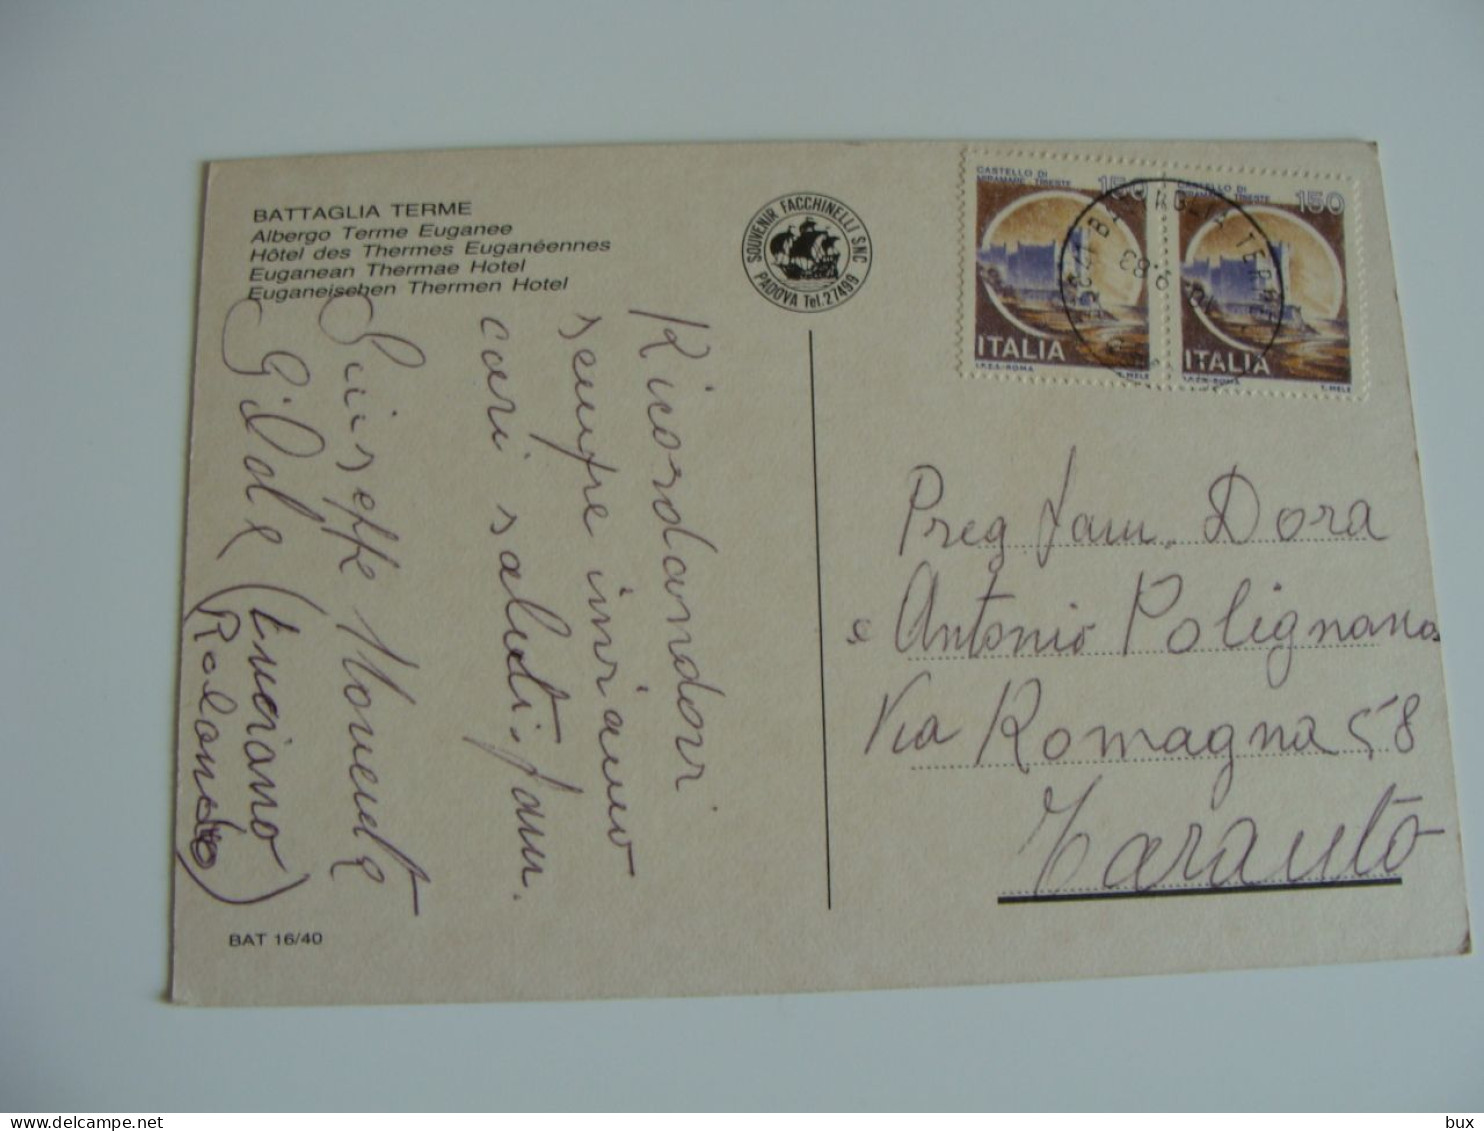 BATTAGLIA TERME
Albergo Terme Euganee
Hôtel des Thermes Euganéennes
Euganean Thermae Hotel
Euganeischen Thermen Hotel
SOUVENIR FACCHINELLI SNC
PADOVA Tel. 27499
CASTELLO DI
MIRAMARE TRIESTE
150
ITALIA
I.P.Z.S.-ROMA
T. MELE
CASTELLO DI
MIRAMARE TRIESTE
150
ITALIA
I.P.Z.S.-ROMA
T. MELE
Ricordandovi
sempre inviamo
cari saluti. fam.
Giuseppe
Gilda (Luciano
Rolando)
Preg. fam. Dora
e Antonio Polignano
Via Romagna 58
Taranto
BAT 16/40
bux